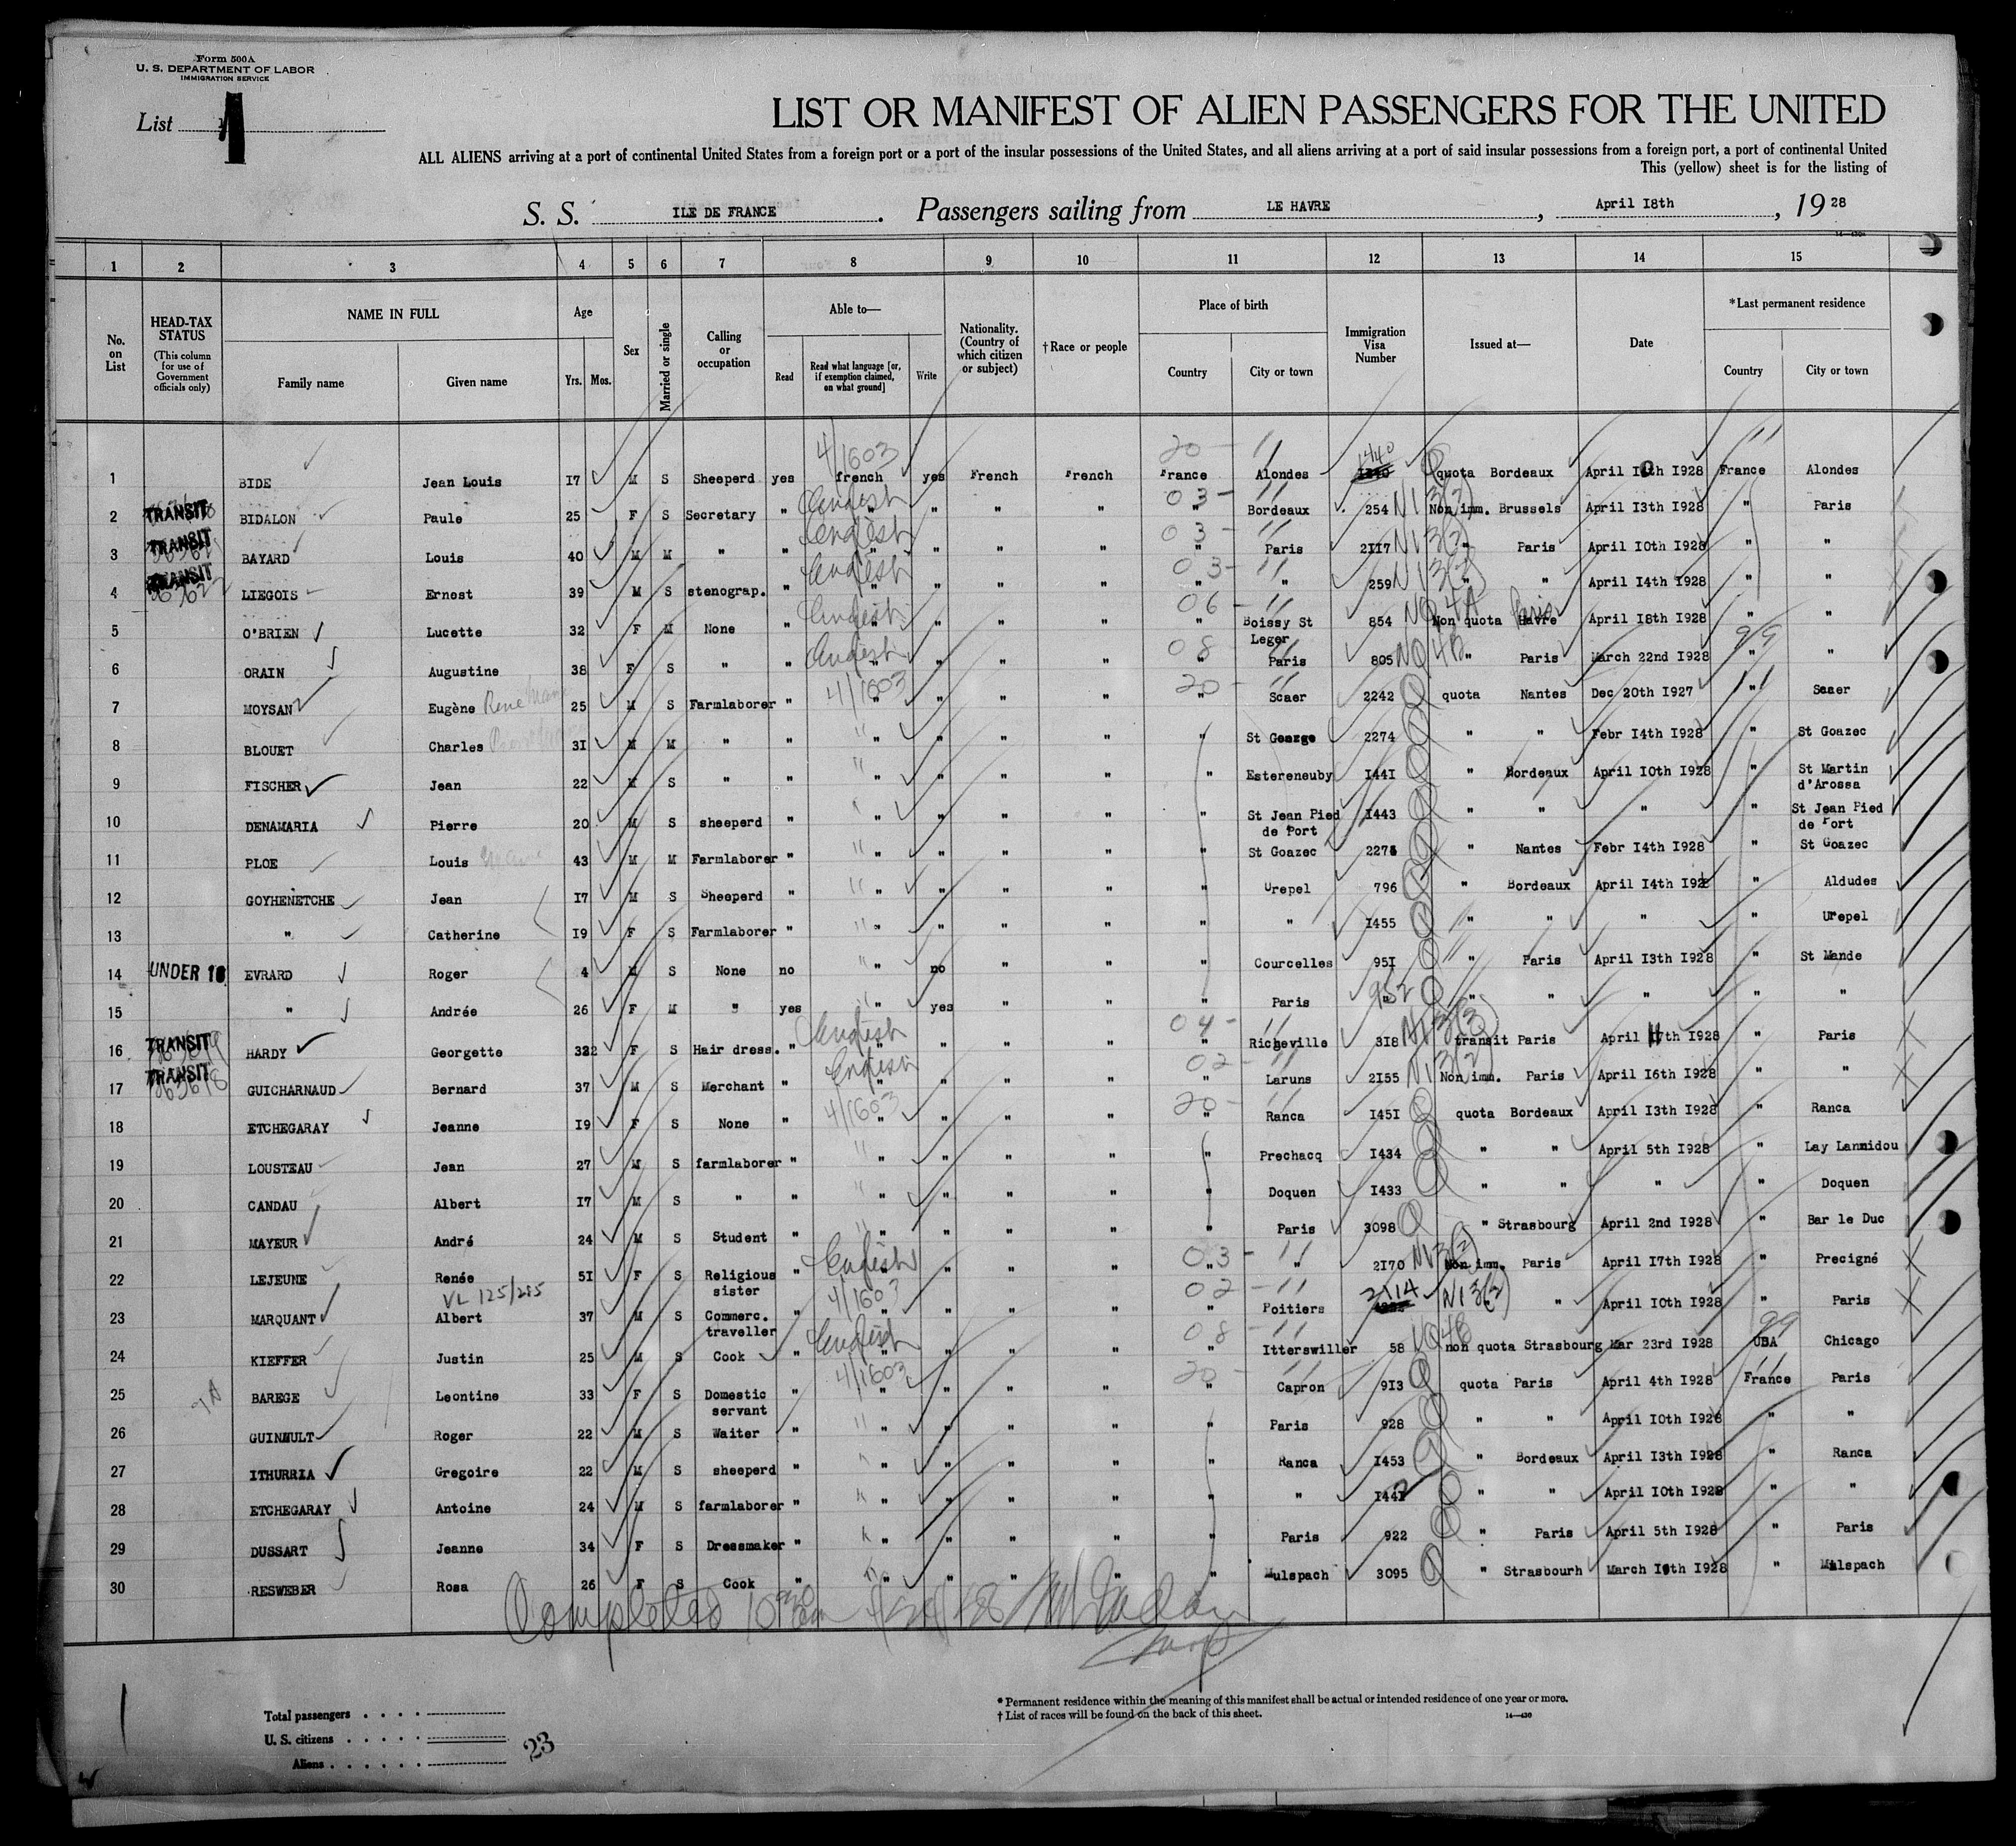 Form 500A
U. S. DEPARTMENT OF LABOR
IMMIGRATION SERVICE
List 1
LIST OR MANIFEST OF ALIEN PASSENGERS FOR THE UNITED
ALL ALIENS arriving at a port of continental United States from a foreign port or a port of the insular possessions of the United States, and all aliens arriving at a port of said insular possessions from a foreign port, a port of continental United
This (yellow) sheet is for the listing of
S. S. ILE DE FRANCE. Passengers sailing from LE HAVRE, April 18th, 1928
1 2 3 4 5 6 7 8 9 10 11 12 13 14 15
No. on List
HEAD-TAX STATUS (This column for use of Government officials only)
NAME IN FULL
Family name Given name
Age
Yrs. Mos.
Sex
Married or single
Calling or occupation
Able to—
Read Read what language [or, if exemption claimed, on what ground] Write
Nationality. (Country of which citizen or subject)
†Race or people
Place of birth
Country City or town
Immigration Visa Number
Issued at—
Date
*Last permanent residence
Country City or town
1 BIDE Jean Louis 17 M S Sheeperd yes 4/1603 french yes French French 20 France Alondes 1440 quota Bordeaux April 10th 1928 France Alondes
2 TRANSIT BIDALON Paule 25 F S Secretary " English " " " " 03 " Bordeaux 254 NI3(2) Non imm. Brussels April 13th 1928 " Paris
3 TRANSIT BAYARD Louis 40 M M " " English " " " " 03 " Paris 2117 NI3(2) " Paris April 10th 1928 " "
4 TRANSIT LIEGOIS Ernest 39 M S stenograp. " English " " " " 03 " " 259 NI3(2) " " April 14th 1928 " "
5 O'BRIEN Lucette 32 F M None " English " " " " 06 " Boissy St Leger 854 NQ4A Non quota Havre Paris April 18th 1928 " "
6 ORAIN Augustine 38 F S " " English " " " " 08 " Paris 805 NQ4B " Paris March 22nd 1928 99 " "
7 MOYSAN Eugène René Marie 25 M S Farmlaborer " 4/1603 " " " " 20 " Scaer 2242 Q quota Nantes Dec 20th 1927 " Scaer
8 BLOUET Charles 31 M M " " " " " " " St George 2274 Q " " Febr 14th 1928 " St Goazec
9 FISCHER Jean 22 M S " " " " " " " Estereneuby 1441 Q " Bordeaux April 10th 1928 " St Martin d'Arossa
10 DENAMARIA Pierre 20 M S sheeperd " " " " " " St Jean Pied de Port 1443 Q " " " " St Jean Pied de Port
11 PLOE Louis 43 M M Farmlaborer " " " " " " St Goazec 2275 Q " Nantes Febr 14th 1928 " St Goazec
12 GOYHENETCHE Jean 17 M S Sheeperd " " " " " " Urepel 796 Q " Bordeaux April 14th 192 " Aldudes
13 " Catherine 19 F S Farmlaborer " " " " " " " 1455 Q " " " " Urepel
14 UNDER 16 EVRARD Roger 4 M S None no " no " " " Courcelles 951 Q " Paris April 13th 1928 " St Mande
15 " Andrée 26 F M " yes " yes " " " Paris 952 Q " " " " "
16 TRANSIT HARDY Georgette 32 F S Hair dress. " English " " " " 04 " Richeville 318 NI3(3) transit Paris April 17th 1928 " Paris
17 TRANSIT GUICHARNAUD Bernard 37 M S Merchant " English " " " " 02 " Laruns 2155 NI3(2) Non imm. Paris April 16th 1928 " "
18 ETCHEGARAY Jeanne 19 F S None " 4/1603 " " " " 20 " Ranca 1451 Q quota Bordeaux April 13th 1928 " Ranca
19 LOUSTEAU Jean 27 M S farmlaborer " " " " " " Prechacq 1434 Q " " April 5th 1928 " Lay Lamidou
20 CANDAU Albert 17 M S " " " " " " " Doquen 1433 Q " " " " Doquen
21 MAYEUR André 24 M S Student " " " " " " Paris 3098 Q " Strasbourg April 2nd 1928 " Bar le Duc
22 LEJEUNE Renée 51 F S Religious sister " English " " " " 03 " " 2170 NI3(2) Non imm. Paris April 17th 1928 " Precigné
VL 125/285
23 MARQUANT Albert 37 M S Commerc. traveller " 4/1603 " " " " 02 " Poitiers 2114 NI3(2) " April 10th 1928 " Paris
24 KIEFFER Justin 25 M S Cook " English " " " " 08 " Itterswiller 58 NQ4B non quota Strasbourg Mar 23rd 1928 99 USA Chicago
25 BAREGE Leontine 33 F S Domestic servant " 4/1603 " " " " 20 " Capron 913 Q quota Paris April 4th 1928 France Paris
26 GUINAULT Roger 22 M S Waiter " " " " " " Paris 928 Q " " April 10th 1928 " "
27 ITHURRIA Gregoire 22 M S sheeperd " " " " " " Ranca 1453 Q " Bordeaux April 13th 1928 " Ranca
28 ETCHEGARAY Antoine 24 M S farmlaborer " " " " " " " 1442 Q " " April 10th 1928 " "
29 DUSSART Jeanne 34 F S Dressmaker " " " " " " Paris 922 Q " Paris April 5th 1928 " Paris
30 RESWEBER Rosa 26 F S Cook " " " " " " Mulspach 3095 Q " Strasbourh March 10th 1928 " Mulspach
Completed
* Permanent residence within the meaning of this manifest shall be actual or intended residence of one year or more.
† List of races will be found on the back of this sheet.
14—430
Total passengers
U. S. citizens
Aliens
23